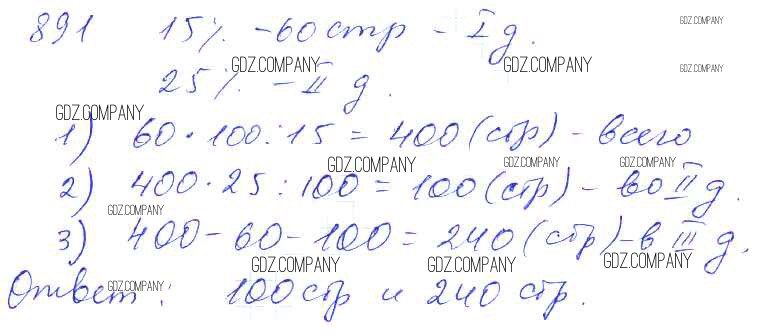 891 15% - 60 стр - I д.
GDZ.COMPANY
GDZ.COMPANY GDZ.COMPANY GDZ.COMPANY
25% - II д.
GDZ.COMPANY
1) 60 · 100 : 15 = 400 (стр) - всего
GDZ.COMPANY GDZ.COMPANY GDZ.COMPANY
2) 400 · 25 : 100 = 100 (стр) - во II д.
GDZ.COMPANY
3) 400 - 60 - 100 = 240 (стр) - в III д.
GDZ.COMPANY GDZ.COMPANY GDZ.COMPANY
Ответ: 100 стр и 240 стр.
GDZ.COMPANY